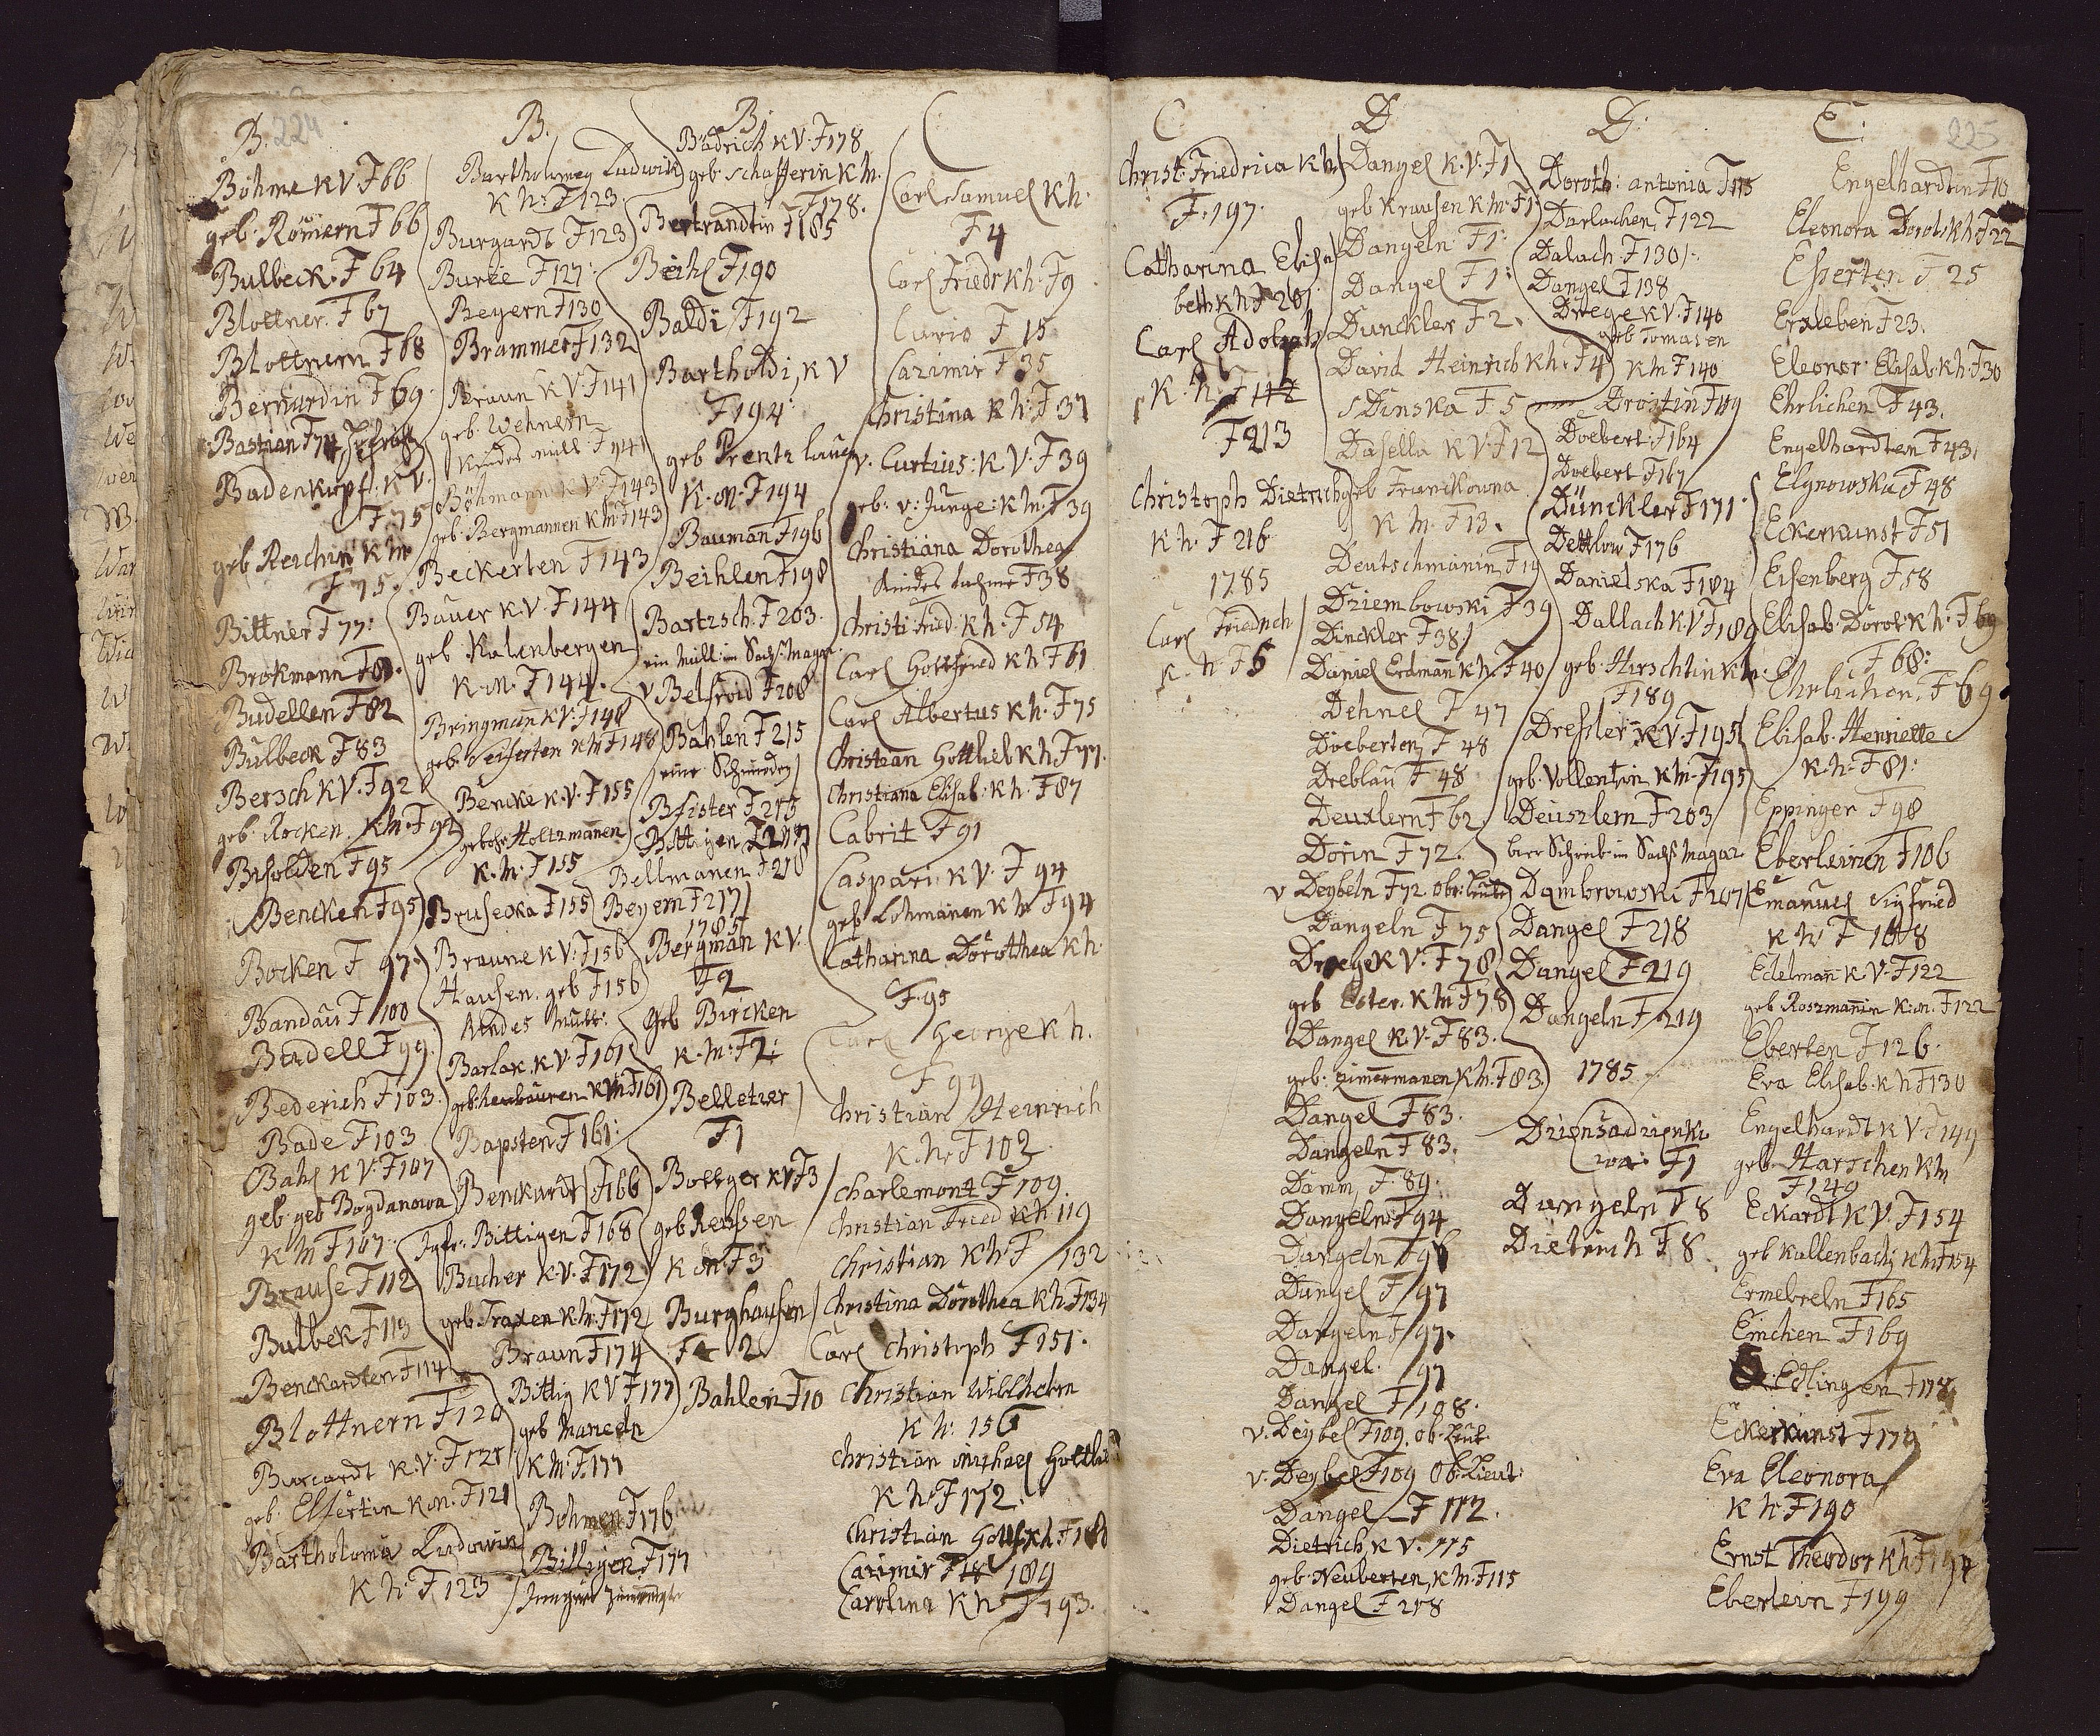 224
B.
Böhme K V. F 66
geb. Römern F 66
Bulbeck. F 64
Blottner. F 67
Blottnern F 68
Bernardin F 69.
Bastian F 74
Badenkopf. K V.
F 75
geb Reichin K M
F 75.
Bittner F 77:
Brokmann F 80.
Budellen F 82
Bulbeck F 83
Bersch K V. F 92
geb. Rocken. K. M. F 92
Bencken F 95
Bocken F 97.
Bandau F 100
Budell F 99.
Bederich F 103.
Bade F 103
Bahl K V. F 107
geb. geb Bogdanowa
K M F 107.
Brause F 112
Bulbek F 113
Benckardten F 114
Blottnern F 120
Burcardt K. V. F 121
geb. Elsertin K M. F 121
Bartholoma Ludowik
K h. F 123
B.
Bartholomey Ludwik
K h: F 123.
Burgardt F 123
Burée F 127:
Beyern F 130
Brammer F 132
Braun K V. F 141
geb. Wehnern
Kindes mutt F 141
Böhmann K V. F 143
geb. Bergmannen K M F 143
Beckerten F 143
Bauer K V. F 144
geb Kalenbergen
K. M. F 144.
Bringmann K V. F 148
geb. Seiferten K M F 148
Bencke K. V. F 155
gebohr Holtzmannen
K. M. F 155
Bruseoka F 155
Braune K V. F 156
Hausen. geb F 156
Kindes Mutt:
Barlak K V. F 161
K M F 161
Bapsten F 161:
Benckardt F 166
Jgfr. Bittigen F 168
Bucher K. V. F 172
geb. Traxen K. M. F 172
Braun F 174
Bittig K V F 177
geb Marceln
K M. F 177
Bohmen F 176
Billigen F 177
B.
Bädrich K V. F 178
geb. Schafferin K M.
F 178.
Bertrandtin F 185
Beihl F 190
Baldi F 192
Bartholdi, K V
F 194:
geb Prentzlauen
K. M. F 194
Baumann F 196
Beihlen F 198
Bartzsch. F 203.
ein Müll im Sachs. Magaz.
v Belfroid F 208
Bahlen F 215
Bfister F 215
Bittigen F 217
Bellmanen F 218
Beyern F 217
1785
Bergman K V.
F 2
geb Bircken
K. M: F 2:
Belletzer
F 1
Bottger K V F 3
geb Reussen
K M. F 3
Burghausen
F 2
Bahlen F 10
C
Carl Samuel K h.
F 4
Carl Friedr K h. F 9
Curio F 15
Cazimir F 35
Christina K h: F 37
v. Curtius: K V. F 39
geb: v: Junge: K M. F 39
Christiana Dorothea
F 38
Christi Fried: K h. F 54
Carl Gottfried K h F 61
Carl Albertus K h. F 75
Christian Gottlieb K h F 77.
Christiana Elisab. K h. F 87
Cabrit F 91
Caspari K V. F 94
geb Lohmanen K M F 94
Catharina Dorothea K h.
F. 95
Carl George K h.
F 99
Christian Heinrich
K. h. F 102
Charlemont F 109
Christian Fried K h 119
Christian K h: F 132
Christina Dorothea K h. F 134
Carl Christoph F 151.
Christian Wilhelm
K h: 156
Christian Michael Gottlieb
K h: F 172.
Christian
Cazimir 189
Carolina K h: F 193.
225
C
Christ: Friedrica K h
F. 197.
Catharina Elisa
beth K h F 201
Carl Adolph
F 213
Christoph Dietrich
K h. F 216
1785
Carl Friedrich
K. h F 6
D
Dangel K. V. F 1
geb Krausen K M F 1
Dangeln F 1.
Dangel F 1:
Dunckler F 2.
David Heinrich K h. F 4
Dinska F 5
Dasella K V. F 12
geb Franckowna
K M. F 13.
Deutschmanin F 19
Dziembowski F 39
Dinckler F 38.
Daniel Erdmann K h. F 40
Dehnel F 47
Doeberten F 48
Dreblau F 48
Deuxlern F 62
Dorin F 72.
v Deybeln F 72
Dangeln F 75
Droege K V. F 78
geb Ester. K M. F 78
Dangel K. V. F 83.
geb: Zimmermanen K M. F 83
Dangel F 83.
Dangeln F 83.
Damm, F. 89.
Dangeln F 94
Dangeln F 96
Dangel F 97
Dangeln F 97.
Dangel. 97
Dangel F 108.
v. Deybel F 109. Ob: Leut.
v. Deybel F 109 Ob: Lieut:
Dangel F 112.
Dietrich K V. 115
geb. Neuberten, K M. F 115
Dangel F 218
D.
Doroth: antonia F 115
Darlachen F 122
Dalach. F 130
Dangel F 138
Droege K V. F 140
geb Tomasen
K M F 140
Drostin F 149
Doebert. F 164
Doebert F 167
Dünckler F 171
Dettlow F 176
Danielska F 184
Dallach K V F 189
geb. Hirschtin K M:
F 189
Dresler K V F 195
geb. Vollentin K M. F 195
Deuszlern F 203
bier Schreib. im Sachs. Magaz.
Dambrowski F 207
Dangel F 218
Dangel F 219
Dangeln F 219
1785
F 1
Dangeln F 8
Dietrich F 8
E.
Engelhardtin F 10
Eleonora Dorot: K h. F 22
Elserten F 25
Erxleben F 23.
Eleonor Elisab. K h. F 30
Ehrlichen F 43.
Engelhardten F 43.
Elgnowska F 48
Eckerkunst F 51
Eisenberg F 58
Elisab. Dorot K h. F 69
F 68:
Ehrlichen. F 69.
Elisab. Henriette
K. h: F 81:
Eppinger F 98
Eberleinen F 106
Emanuel Sigfried
K h F 108
Edelmann K V. F 122
geb Roszmanin K. M. F 122
Eberten F 126.
Eva Elisab. K h F 130
Engelhardt K V. F 149
geb. Harschen K M
F 149
Eckardt K V. F 154
geb Kallenbach, K M F 154
Ermebreln F 165
Einchen F 169
Edlingen F 178
Eckerkunst F 179
Eva Eleonora
K h: F 190
Ernst Theodor K h: F 194
Eberlein F 199